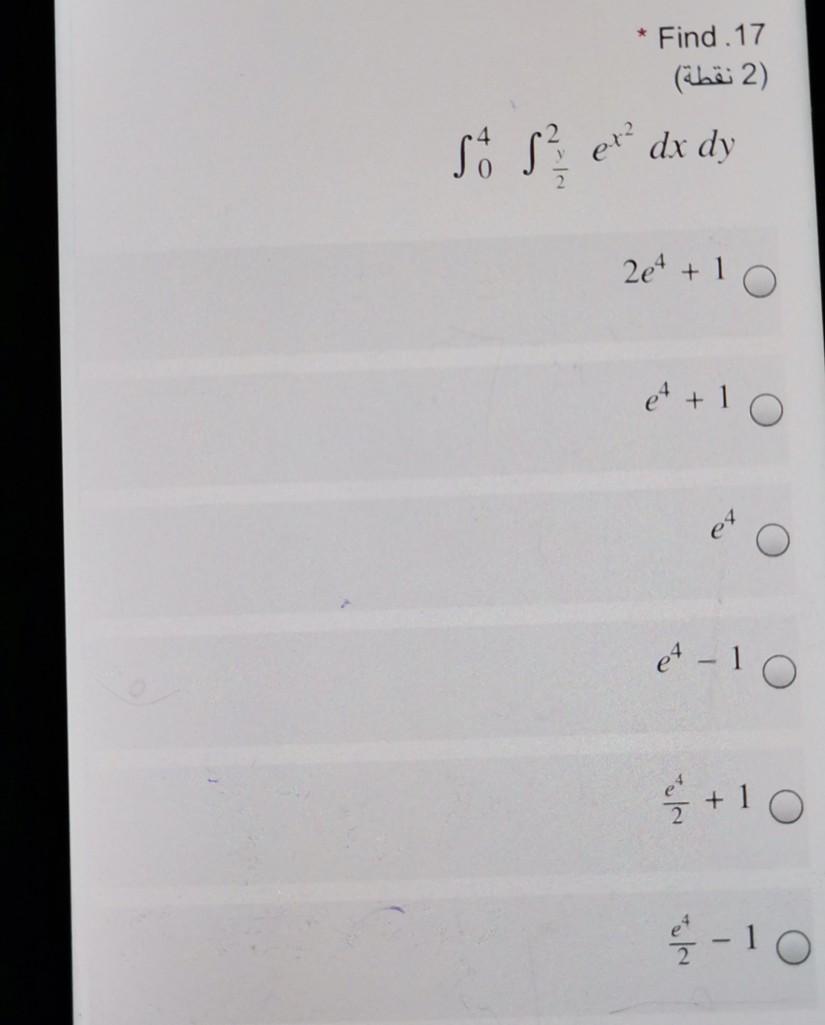 * Find .17
(2 نقطة)
∫₀⁴ ∫_{y/2}^2 e^{x^2} dx dy
2e⁴ + 1
e⁴ + 1
e⁴
e⁴ − 1
e⁴/2 + 1
e⁴/2 − 1